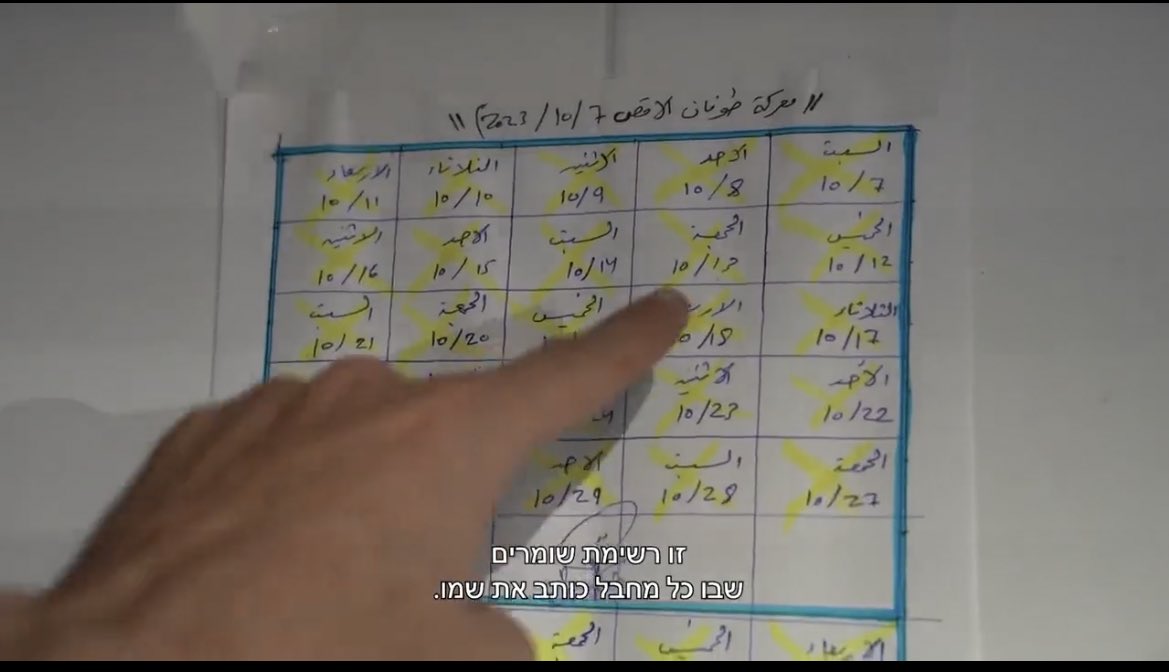 // معركة طوفان الاقصى 7 /10/ 2023) //
السبت الاحد الاثنين الثلاثاء الاربعاء
10/7 10/8 10/9 10/10 10/11
الخميس الجمعة السبت الاحد الاثنين
10/12 10/13 10/14 10/15 10/16
الثلاثاء الخميس الجمعة السبت
10/17 0/18 10/20 10/21
الأحد الاثنين
10/22 10/23
الجمعة السبت الاحد
10/27 10/28 10/29
الاربعاء الخميس الجمعة
זו רשימת שומרים
שבו כל מחבל כותב את שמו.